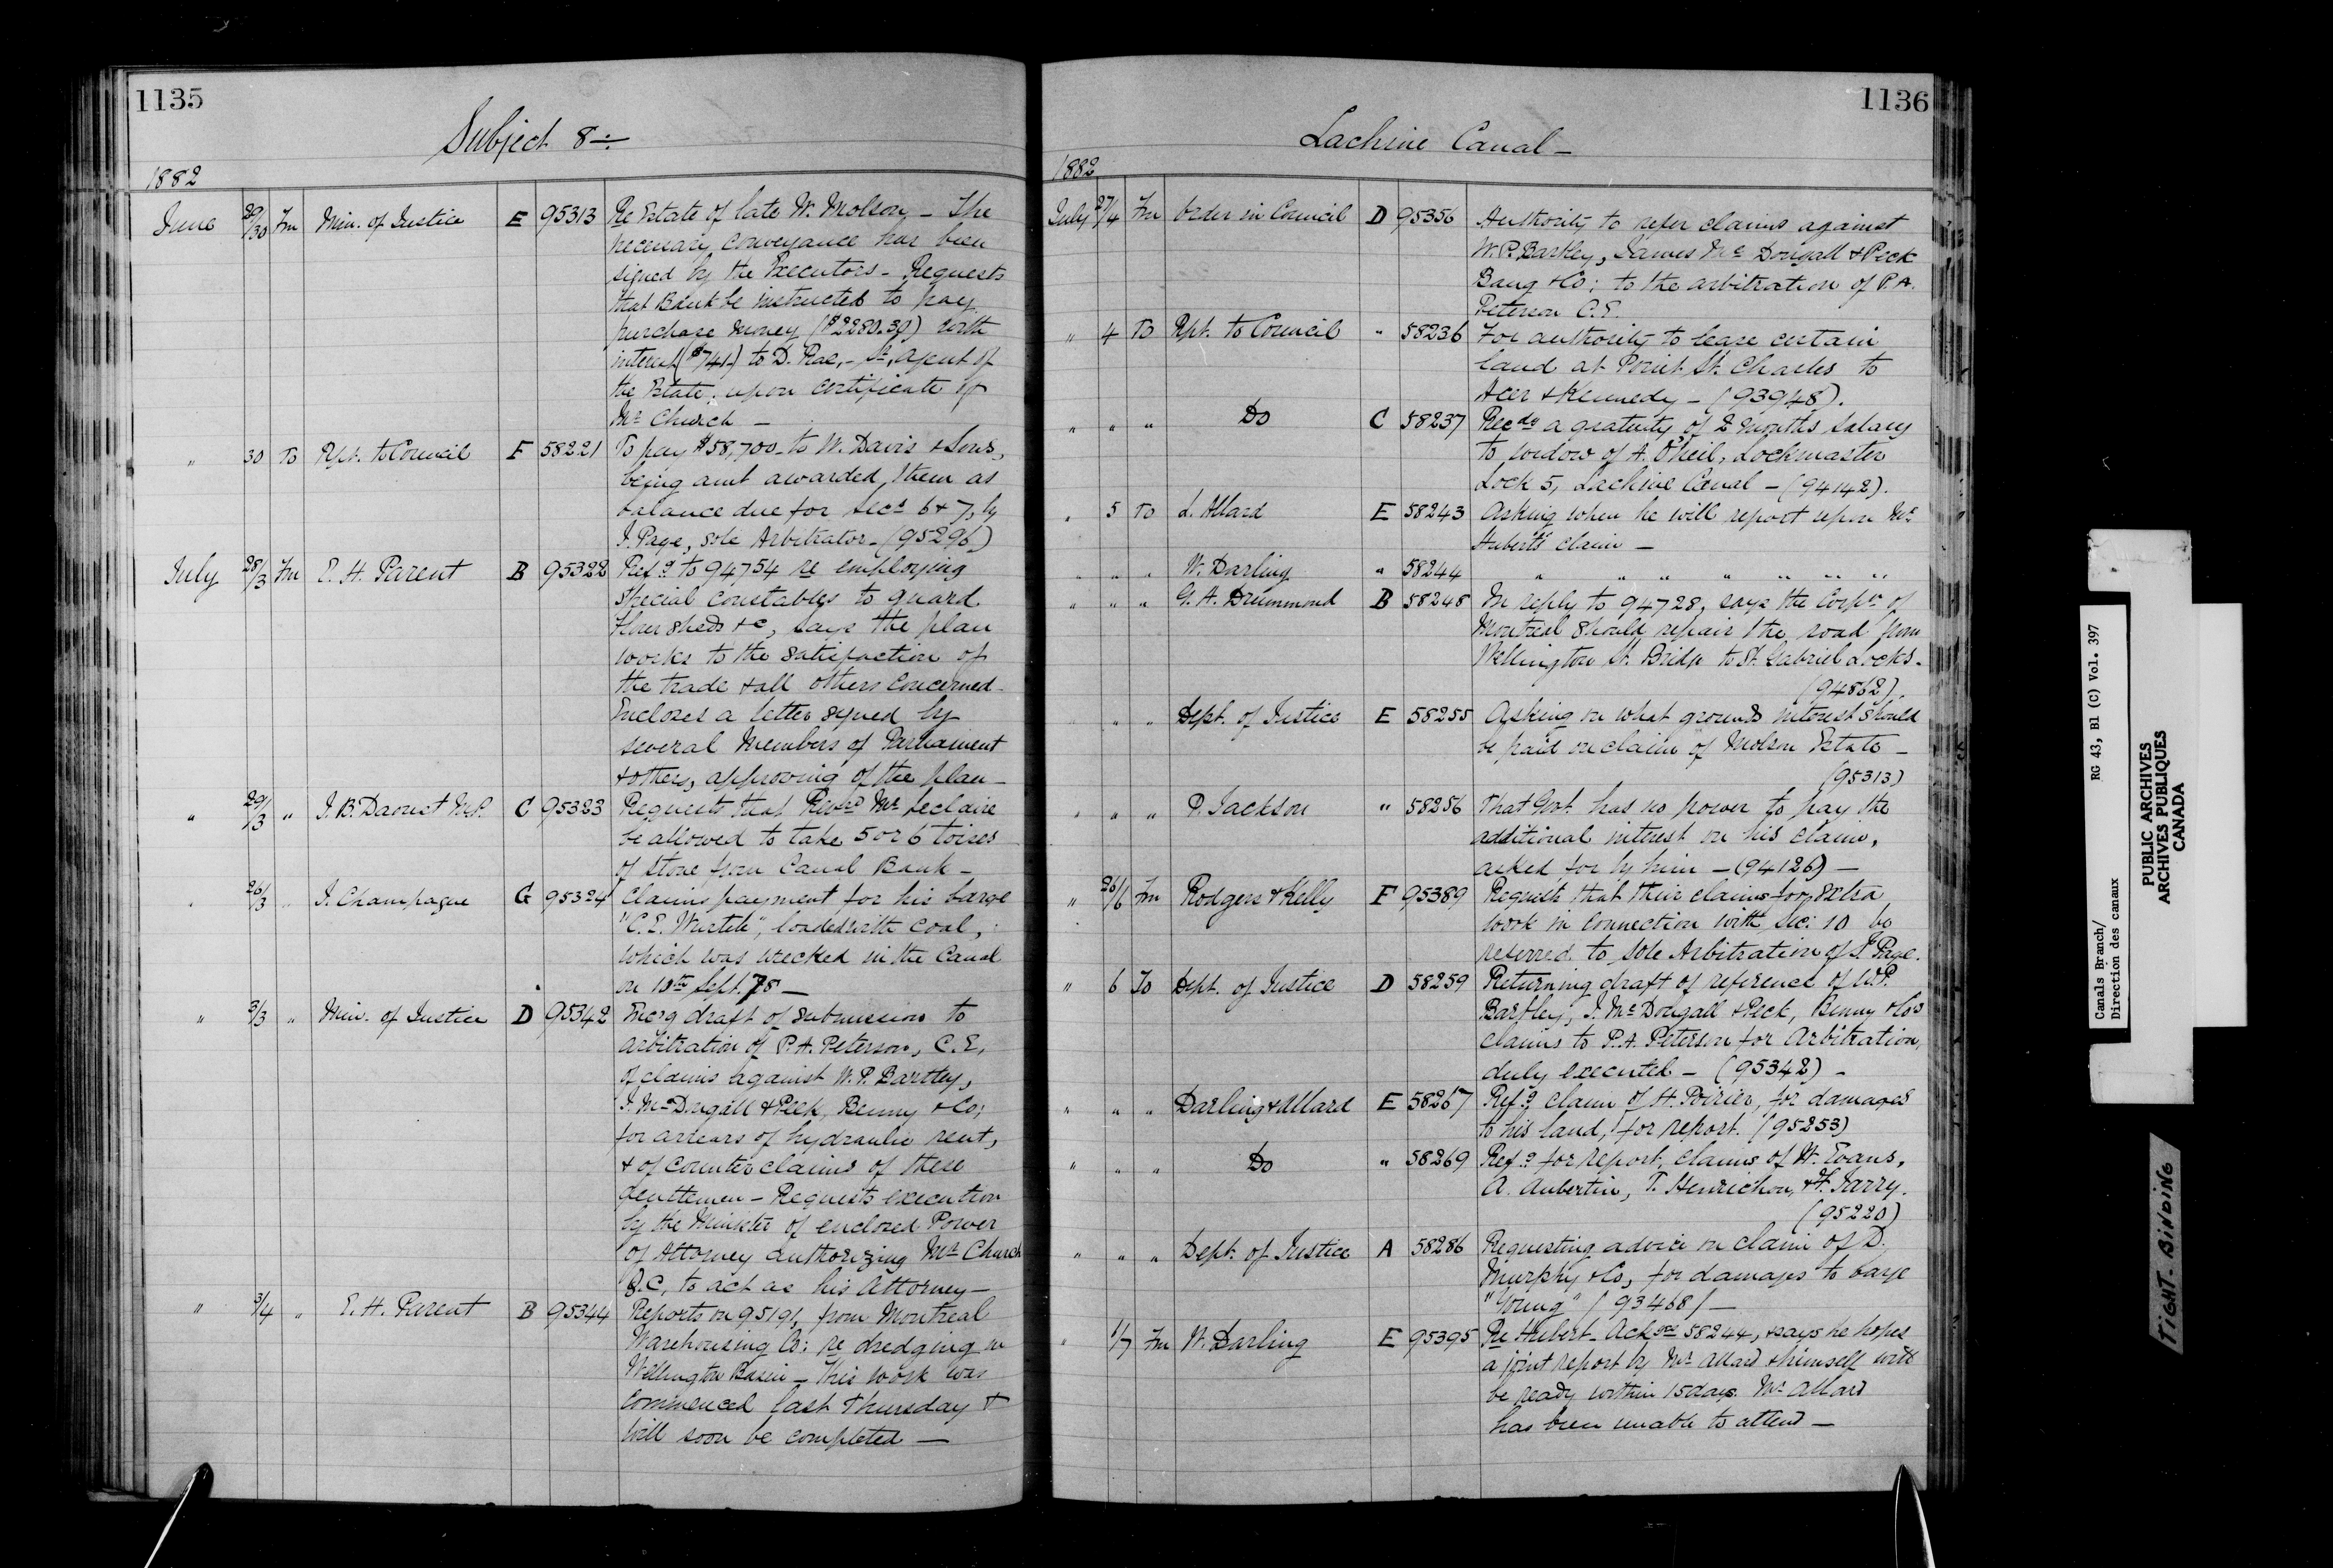 1135
Subject 8
1882
June 29/30 Fm Min. of Justice E 95313 Re Estate of late W. Molson, – The
necessary conveyance has been
signed by the Executors – Requests
that Bank be instructed to pay
purchase money ($2280.30) with
interest ($741) to D. Rae, – agent of
the Estate, upon certificate of
Mr Church –
" 30 To Rpt. to Council F 58221 To pay $58,700 – to W. Davis & Sons,
being amt awarded them as
balance due for Secs 6 & 7, by
J. Page, sole Arbitrator – (95296)
July 28/3 Fm E. H. Parent B 95322 Refg to 94754 re employing
special constables to guard
flour sheds &c, says the plan
works to the satisfaction of
the trade & all others concerned –
Encloses a letter signed by
several Members of Parliament
& others, approving of the plan –
" 29/3 " J. B. Daoust M.P. C 95323 Requests that Revd Mr Leclaire
be allowed to take 5 or 6 toises
of stone from Canal Bank –
" 26/3 " J. Champagne G 95324 Claims payment for his barge
"C. E. Wurtele", loaded with coal,
which was wrecked in the Canal
on Sept. 78 –
" 3/3 " Min. of Justice D 95342 Encg draft of submission to
arbitration of P. A. Peterson, C.E,
of claims against W. P. Bartley,
J. McDougall & Peck, Benny & Co;
for arrears of hydraulic rent,
& of counter claims of these
gentlemen – Requests execution
by the Minister of enclosed Power
of Attorney authorizing Mr Church
Q.C, to act as his Attorney –
" 3/4 " E. H. Parent B 95344 Reports on 95191, from Montreal
Warehousing Co: re dredging in
Wellington Basin – This work was
commenced last Thursday &
will soon be completed –
1136
Lachine Canal –
1882
July 27/4 Fm Order in Council D 95356 Authority to refer claims against
W. P. Bartley, James McDougall & Peck
Bang & Co; to the arbitration of P. A.
Peterson C.E.
" 4 To Rpt. to Council " 58236 For authority to lease certain
land at Point St. Charles to
Acer & Kennedy – (93948).
" " " Do C 58237 Recdg a gratuity of 2 months salary
to widow of A. O'Neil, Lockmaster
Lock 5, Lachine Canal – (94142).
" 5 To L. Allard E 58243 Asking when he will report upon Mr
Hubert's claim –
" " " W. Darling " 58244 " " " " " " "
" " " G. A. Drummond B 58248 In reply to 94728, says the Corpn of
Montreal should repair the road from
Wellington St. Bridge to St. Gabriel Locks –
(94862).
" " Dept. of Justice E 58255 Asking on what grounds interest should
be paid on claim of Molson Estate –
(95313)
" " " P. Jackson " 58256 That Govt. has no power to pay the
additional interest on his claim,
asked for by him – (94126) –
" 26/6 Fm Rodgers & Kelly F 95389 Request that their claims for extra
work in connection with Sec: 10 be
referred to sole Arbitration of J. Page.
" 6 To Dept. of Justice D 58259 Returning draft of reference of W. P.
Bartley, J. McDougall & Peck, Benny & Co's
claims to P. A. Peterson for Arbitration,
duly executed – (95342) –
" " " Darling & Allard E 58267 Refg claim of H. Poirier, for damages
to his land, for report. (95253)
" " " Do " 58269 Refg for report, claims of W. Evans,
A. Aubertin, T. Henrichon, & F. Jarry.
(95220)
" " " Dept. of Justice A 58286 Requesting advice on claim of D.
Murphy & Co, for damages to barge
"Young" (93468) –
" 1/7 Fm W. Darling E 95395 Re Hubert – Acks 58244, & says he hopes
a joint report by Mr Allard & himself will
be ready within 15 days. Mr Allard
has been unable to attend –
Canals Branch/ RG 43, B1 (C) Vol. 397
Direction des canaux
PUBLIC ARCHIVES
ARCHIVES PUBLIQUES
CANADA
TIGHT-BINDING